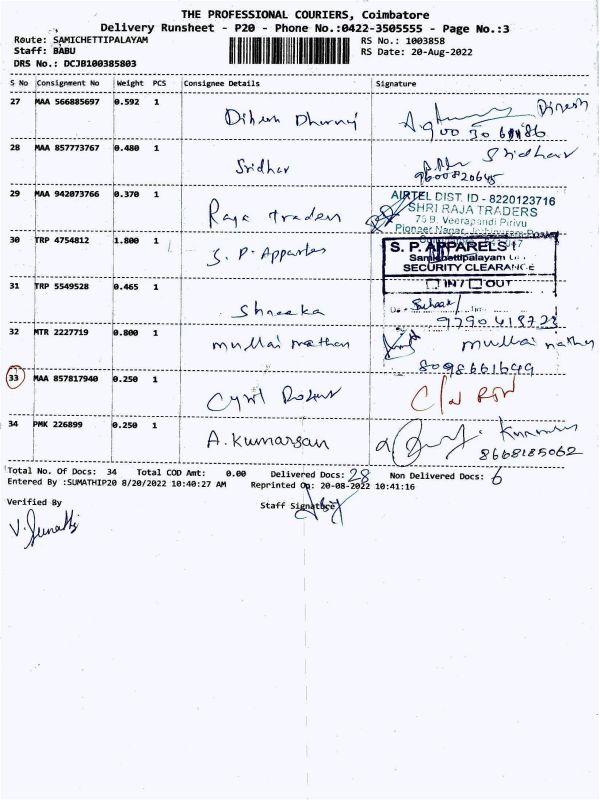 THE PROFESSIONAL COURIERS, Coimbatore
Delivery Runsheet - P20 - Phone No.:0422-3505555 - Page No.:3
Route: SAMICHETTIPALAYAM
RS No.: 1003858
Staff: BABU
RS Date: 20-Aug-2022
DRS No.: DCJB100385803
S No Consignment No Weight PCS Consignee Details Signature
27 MAA 566885697 0.592 1 Dinesh
28 MAA 857773767 0.480 1 Sridhar Sridhar
9600820645
29 MAA 942073766 0.370 1 Raja Traders
AIRTEL DIST. ID - 8220123716
SHRI RAJA TRADERS
75 B, Veerapandi Pirivu
Pioneer Nagar,
30 TRP 4754812 1.800 1 S. P. Apparles
S. P. APPARELS
Samichettipalayam
SECURITY CLEARANCE
IN / OUT
31 TRP 5549528 0.465 1 Shreeka
9790418723
32 MTR 2227719 0.800 1 mullai nathan mullai nathan
8098661699
33 MAA 857817940 0.250 1 Cyril Robert
34 PMK 226899 0.250 1 A. Kumarsan
8668185062
Total No. Of Docs: 34 Total COD Amt: 0.00 Delivered Docs: 28 Non Delivered Docs: 6
Entered By :SUMATHIP20 8/20/2022 10:40:27 AM Reprinted On: 20-08-2022 10:41:16
Verified By
Staff Signature
V. Sumathi